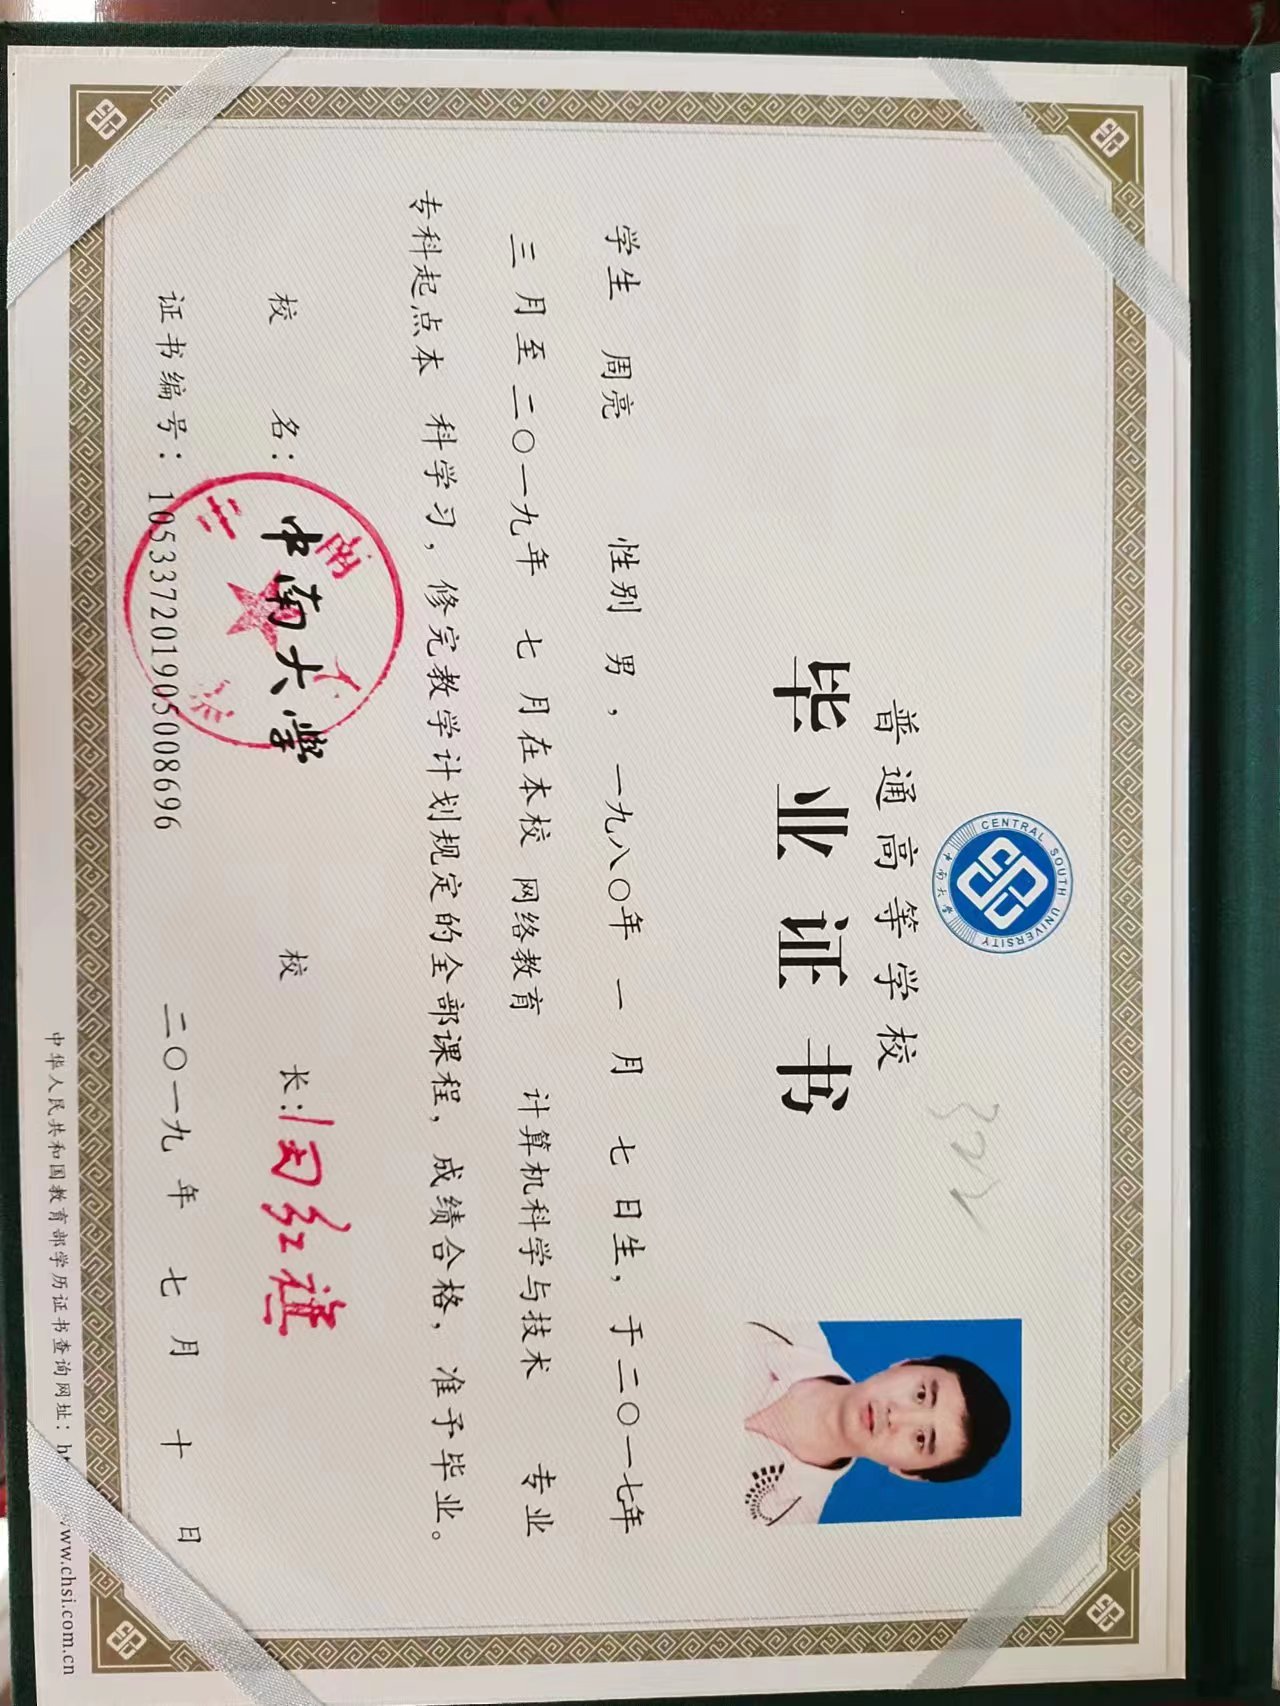 CENTRAL SOUTH UNIVERSITY
中南大学
普通高等学校
毕业证书
学生 周亮 性别 男，一九八〇年 一 月 七 日生，于二〇一七年
三 月至二〇一九年 七 月在本校 网络教育 计算机科学与技术 专业
专科起点本 科学习，修完教学计划规定的全部课程，成绩合格，准予毕业。
校 名：中南大学 校 长：周红祺
证书编号：105337201905008696 二〇一九 年 七 月 十 日
中华人民共和国教育部学历证书查询网址：www.chsi.com.cn